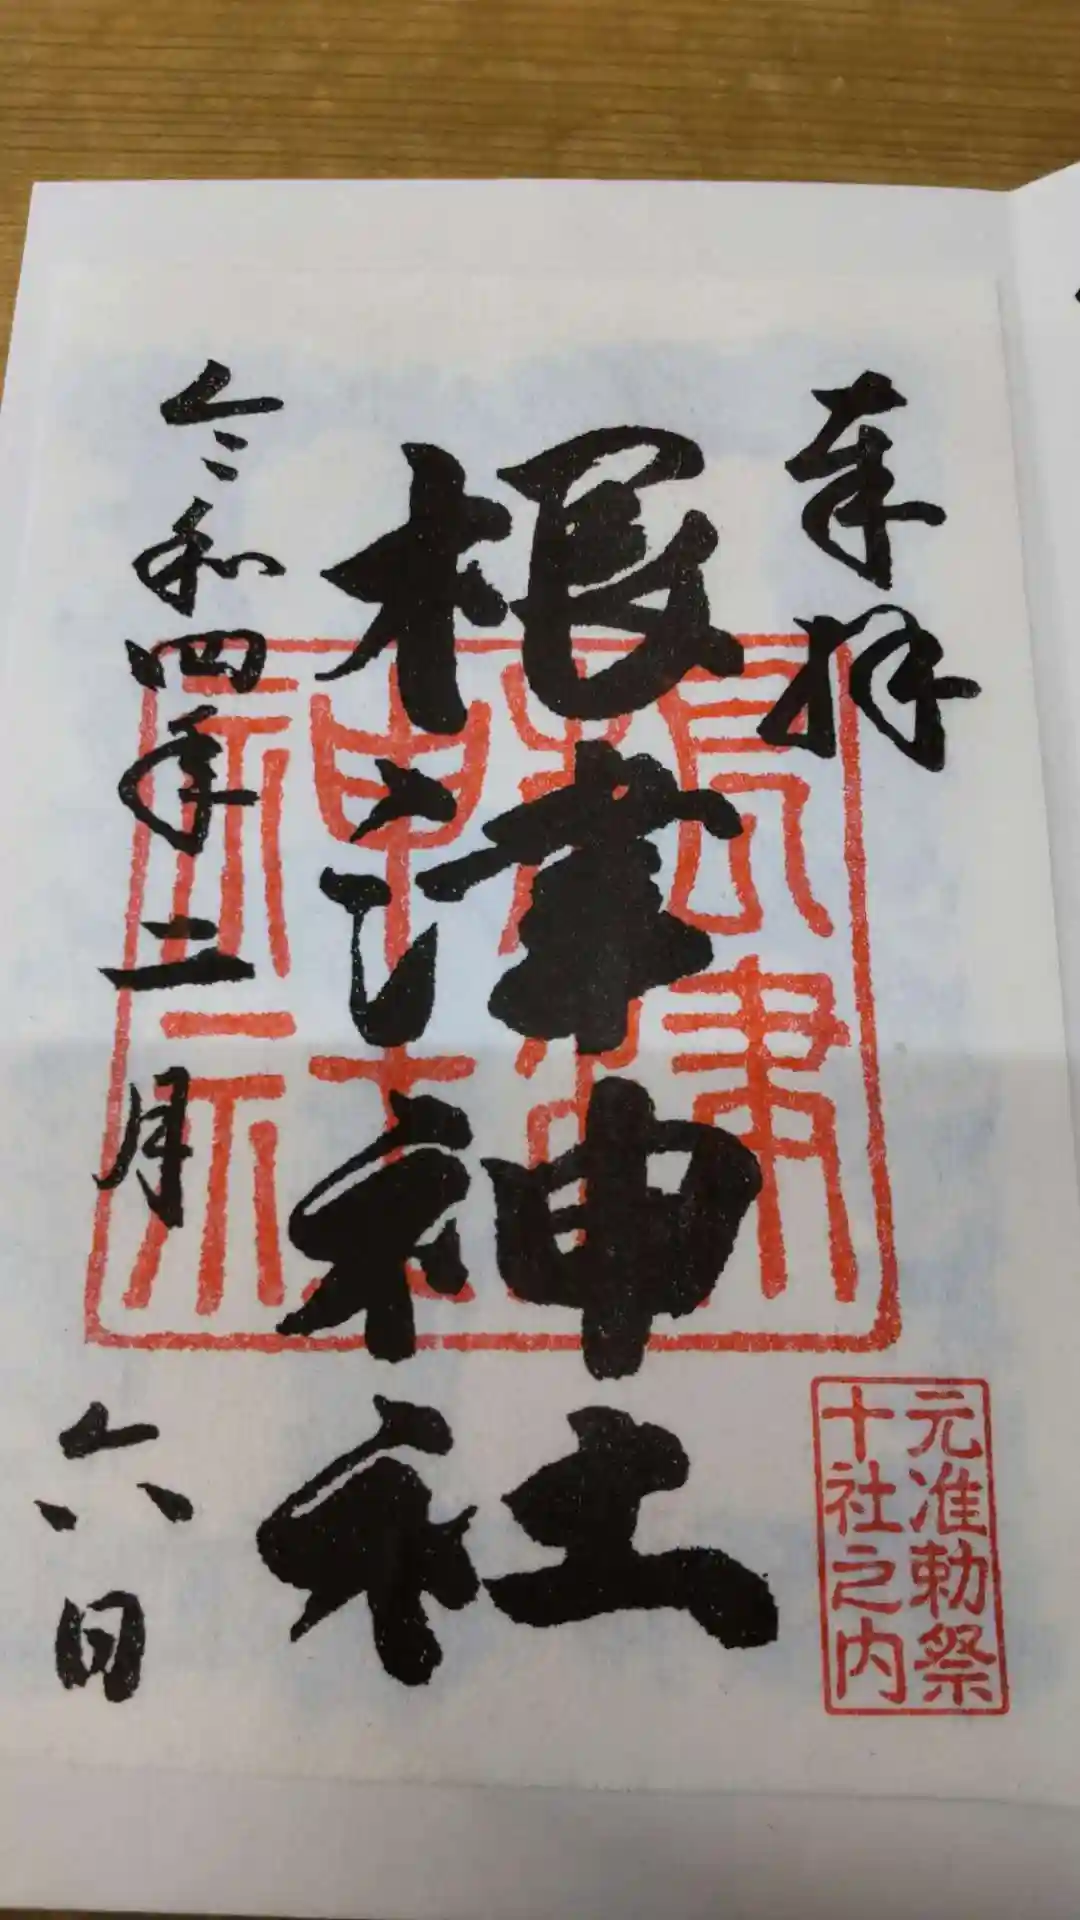 奉拝
根津神社
令和四年二月六日
元准勅祭
十社之内